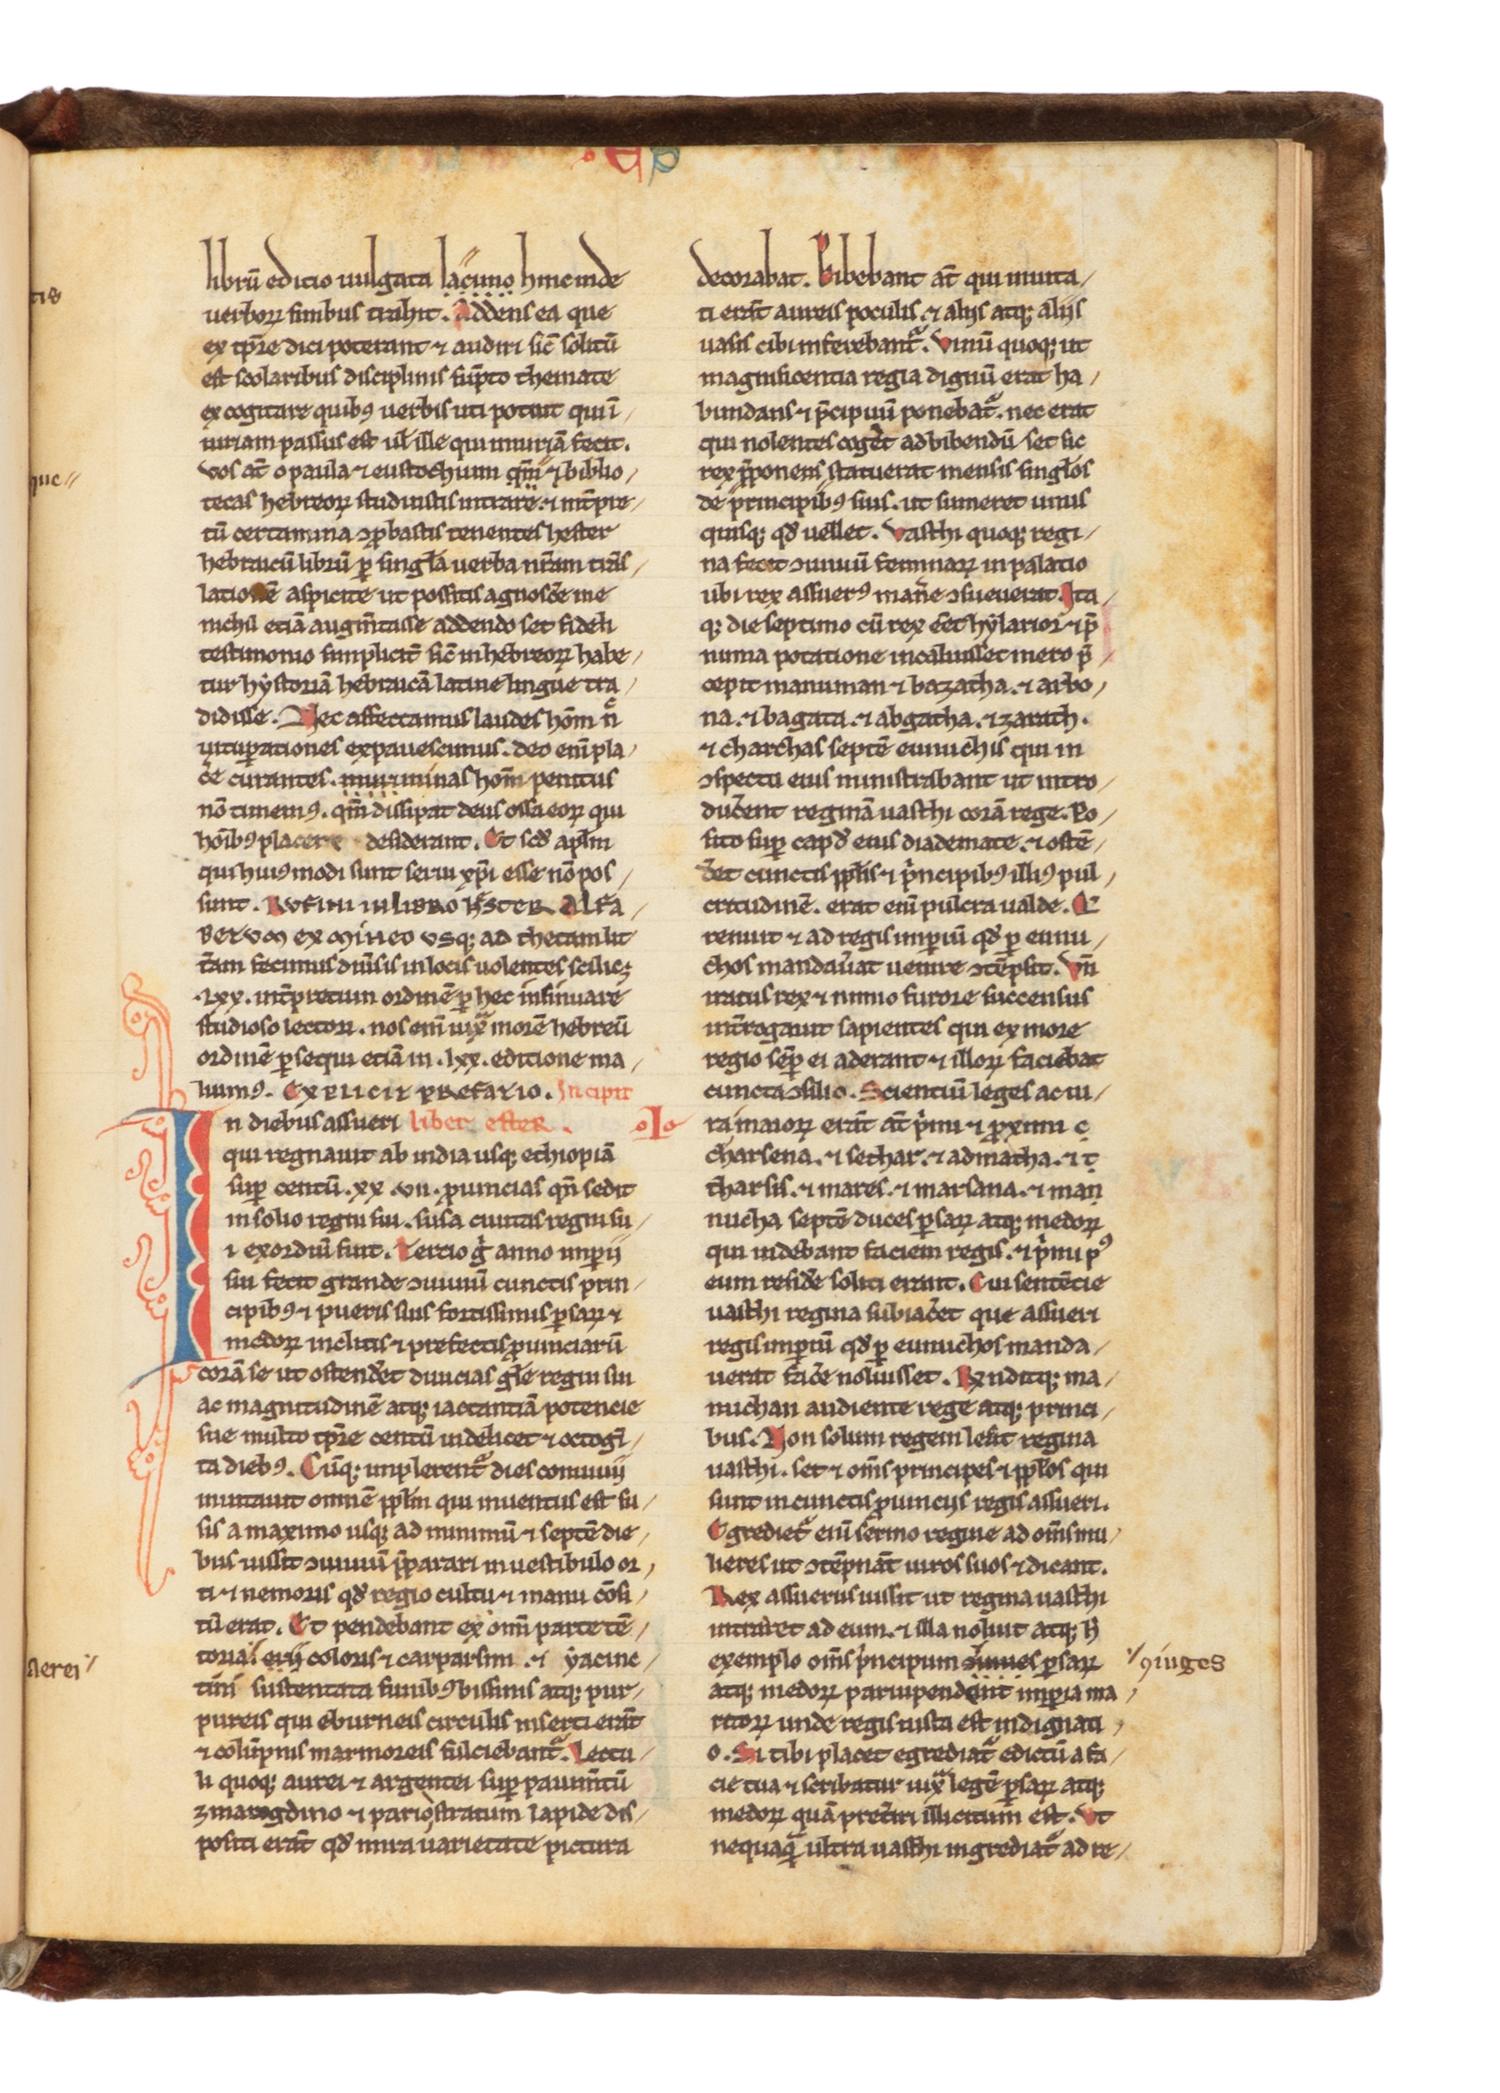 ·ES
librū editio uulgata lacinio hincinde
uerboꝝ finibus trahit. Addens ea que
ex tp̄re dici poterant ⁊ audiri sic̄ solitū
est scolaribus disciplinis sūpto themate
excogitare quibꝰ uerbis uti potuit qui ī /
iuriam passus est ul̄ ille qui iniuriā fecit.
Vos aū o paula ⁊ eustochium qm̄ ⁊ biblio /
tecas hebreoꝝ studuistis intrare. ⁊ int̄pre /
tū certamina ꝯprobastis tenentes hester
hebraicū librū ꝑ singl̄a uerba nr̄am trās /
lationē aspicite ut possitis agnosc̄e me
nichil etiā augm̄tasse addendo set fideli
testimonio simplicit̄ sic̄ in hebreoꝝ habe /
tur hystoriā hebraicā latine lingue tra /
didisse. Nec affectamus laudes hom̄ n̄
uituꝑationes expauescimus. deo eni pla /
c̄e curantes. minas hom̄ penitus
nō timemꝰ. qm̄ dissipat deus ossa eoꝝ qui
hoībꝰ placere desiderant. Et scd̄ apl̄m
qui huiꝰmodi sunt serui xp̄i esse nō pos /
sunt. RVFINI IN LIBRO HESTER ALFA /
BETVM EX MINEO VSQ; ad thetam litt̄
t̄am fecimus diu̅sis in locis uolentes scilicꝫ
.lxx. int̄pretum ordinē ꝑ hec insinuare
studioso lectori. nos eni iuxͣ morē hebreū
ordinē ꝑsequi etiā in .lxx. editione ma /
luimꝰ. EXPLICIT PREFATIO. Incipit
In diebus assueri liber ester.
qui regnauit ab india usq; ethiopiā
suꝑ centū .xx. vii. ꝓuincias qn̄ sedit
in solio regni sui. susa ciuitas regni su /
i exordiū fuit. Tertio ḡ anno imꝑii
sui fecit grande ꝯuiuiū cunctis prin /
cipibꝰ ⁊ pueris suis fortissimis ꝑsaꝝ ⁊
medoꝝ inclitis ⁊ prefectis ꝓuinciarū
corā se ut ostend̄et diuicias gl̄e regni sui
ac magnitudinē atq; iactantiā potencie
sue multo tp̄re centū uidelicet ⁊ octogī /
ta diebꝰ. Cūq; implerent̄ dies conuiuii
inuitauit omnē ppl̄m qui inuentus est su /
sis a maximo usq; ad minimū ⁊ septē die /
bus iussit ꝯuiuiū p̄parari in uestibulo or /
ti ⁊ nemoris qd̄ regio cultu ⁊ manu cōsi /
tū erat. Et pendebant ex omi parte tē /
toria erii coloris ⁊ carpasini ⁊ yacinc /
tini sustentata funibꝰ bissinis atq; pur /
pureis qui eburneis circulis inserti erāt
⁊ colūpnis marmoreis fulciebant̄. Lectu /
li quoq; aurei ⁊ argentei suꝑ pauim̄tū
zmaragdino ⁊ pario stratum lapide dis /
positi erāt qd̄ mira uarietate pictura
decorabat. Bibebant aū qui inuita /
ti erāt aureis poculis. ⁊ aliis atq; aliis
uasis cibi inferebant̄. Vinū quoq; ut
magnificentia regia dignū erat ha /
bundans ⁊ p̄cipuū ponebat̄. nec erat
qui nolentes coḡet ad bibendū set sic
rex p̄ponens statuerat mensis singl̄os
de principibꝰ suis. ut sumeret unus
quisq; qd̄ uellet. Vasthi quoq; regi /
na fecit ꝯuiuiū feminaꝝ in palatio
ubi rex assuerꝰ man̄e ꝯsueuerat. Ita /
q; die septimo cū rex ēet hylarior ⁊ p̄
nimia potatione incaluisset mero p̄ /
cepit manuman ⁊ bazatha. ⁊ arbo /
na. ⁊ bagata. ⁊ abgatha. ⁊ zarath.
⁊ charchas septē eunuchis qui in
ꝯspectu eius ministrabant ut intro /
duc̄ent reginā uasthi corā rege. Po /
sito suꝑ capd̄ eius diademate. ⁊ ostē /
d̄et cunctis ppl̄is ⁊ principibꝰ illiꝰ pul /
critudinē. erat eni pulcra ualde. Q
renuit ⁊ ad regis imꝑiū qd̄ ꝑ eunu /
chos manda̅uat uenire ꝯtēpsit. Vn̄
iratus rex ⁊ nimio furore succensus
int̄rogauit sapientes qui ex more
regio semꝑ ei aderant ⁊ illoꝝ faciebat
cuncta ꝯsilio. Scientiū leges ac iu /
ra maioꝝ erāt aū primi ⁊ ꝓximi
charsena. ⁊ sethar. ⁊ admatha. ⁊
tharsis. ⁊ mares. ⁊ marsana. ⁊ mam
nucha septē duces ꝑsaꝝ atq; medoꝝ
qui uidebant faciem regis. ⁊ primi pꝰ
eum resid̄e soliti erant. Cui sentēcie
uasthi regina subiac̄et que assueri
regis imꝑiū qd̄ ꝑ eunuchos manda /
uerat fac̄e noluisset. Rnditq; ma /
nuchan audiente rege atq; princi /
bus. Non solum regem lesit regina
uasthi. set ⁊ omīs principes ⁊ ppl̄os qui
sunt in cunctis ꝓuinciis regis assueri.
Egrediet̄ eni sermo regine ad omīs mu /
lieres ut ꝯtēpnāt uiros suos ⁊ dicant.
Rex assuerus iussit ut regina uasthi
intraret ad eum. ⁊ illa noluit atq; h̄
exemplo omīs principum ꝑsaꝝ
ꝯiuges
atq; medoꝝ paruipendent imꝑia ma /
ritoꝝ unde regis iusta est indignati /
o. Si tibi placet egrediat̄ edictū a fa /
cie tua ⁊ scribatur iuxͣ legē ꝑsaꝝ atq;
medoꝝ quā pret̄iri illicitum est. Vt
nequaq̄ ultra uasthi ingrediat̄ ad re /